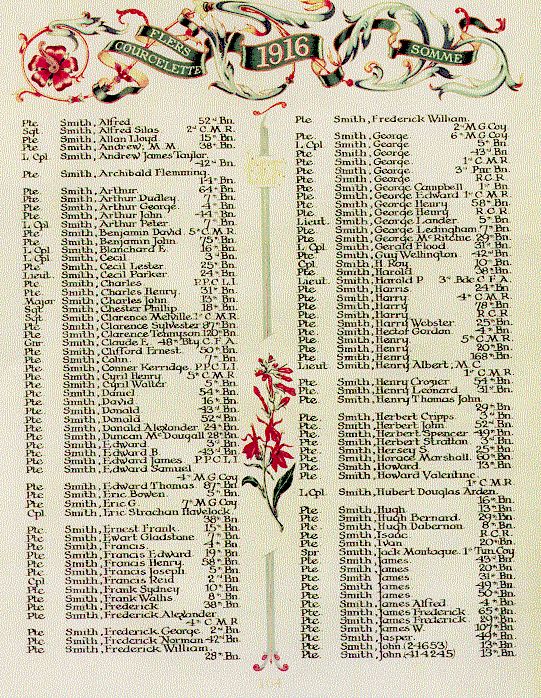 FLERS
COURCELETTE
1916
SOMME
Pte Smith, Alfred 52nd Bn.
Sgt. Smith, Alfred Silas 2nd C.M.R.
Pte Smith, Allan Lloyd 15th Bn.
Pte Smith, Andrew, M.M. 38th Bn.
L Cpl Smith, Andrew James Taylor.
42nd Bn.
Pte Smith, Archibald Flemming.
14th Bn.
Pte Smith, Arthur 64th Bn.
Pte Smith, Arthur Dudley. 7th Bn.
Pte Smith, Arthur George. 4th Bn.
Pte Smith, Arthur John 44th Bn.
L Cpl Smith, Arthur Peter 7th Bn.
Pte Smith, Benjamin David. 5th C.M.R.
Pte Smith, Benjamin John 75th Bn.
L Cpl Smith, Blanchard E. 16th Bn.
L Cpl Smith, Cecil 3rd Bn.
Pte Smith, Cecil Lester 25th Bn.
Lieut. Smith, Cecil Parker. 24th Bn.
Pte Smith, Charles P.P.C.L.I.
Pte Smith, Charles Henry. 31st Bn.
Major Smith, Charles John. 13th Bn.
Sgt Smith, Chester Phillip 18th Bn.
Sgt Smith, Clarence Melville. 1st C.M.R.
Pte Smith, Clarence Sylvester 87th Bn.
Pte Smith, Clarence Tennyson 120th Bn.
Gnr Smith, Claude E. 48th Bty. C.F.A.
Pte Smith, Clifford Ernest 50th Bn.
Pte Smith, Colin 7th Bn.
Pte Smith, Conner Kerridge. P.P.C.L.I.
Pte Smith, Cyril Henry 5th C.M.R.
Pte Smith, Cyril Walter 5th Bn.
Pte Smith, Daniel 54th Bn.
Pte Smith, David 16th Bn.
Pte Smith, Donald 43rd Bn.
Pte Smith, Donald 52nd Bn.
Pte Smith, Donald Alexander 24th Bn.
Pte Smith, Duncan McDougall 28th Bn.
Pte Smith, Edward 3rd Bn.
Pte Smith, Edward B. 43rd Bn.
Pte Smith, Edward James P.P.C.L.I.
Pte Smith, Edward Samuel
4th M.G.Coy
Pte Smith, Edward Thomas 87th Bn.
Pte Smith, Eric Bowen. 5th Bn.
Pte Smith, Eric G. 7th M.G.Coy
Cpl Smith, Eric Strachan Havelock.
38th Bn.
Pte Smith, Ernest Frank. 15th Bn.
Pte Smith, Ewart Gladstone 7th Bn.
Pte Smith, Francis. 4th Bn.
Pte Smith, Francis Edward. 19th Bn.
Pte Smith, Francis Henry. 58th Bn.
Pte Smith, Francis Joseph 5th Bn.
Cpl Smith, Francis Reid 2nd Bn.
Pte Smith, Frank Sydney 10th Bn.
Pte Smith, Frank Walhs 8th Bn.
Pte Smith, Frederick 38th Bn.
Pte Smith, Frederick Alexander
4th C.M.R.
Pte Smith, Frederick George 2nd Bn.
Pte Smith, Frederick Norman 42nd Bn.
Pte Smith, Frederick William.
28th Bn.
Pte Smith, Frederick William.
2nd M.G.Coy
Pte Smith, George 6th M.G.Coy
L Cpl Smith, George 5th Bn.
Pte Smith, George 43rd Bn.
Pte Smith, George 1st C.M.R.
Pte Smith, George 3rd Pnr Bn.
Pte Smith, George R.C.R.
Pte Smith, George Campbell 1st Bn.
Pte Smith, George Edward 1st C.M.R.
Pte Smith, George Henry 58th Bn.
Pte Smith, George Henry R.C.R.
Lieut. Smith, George Lander 5th Bn.
Pte Smith, George Ledingham 7th Bn.
Pte Smith, George McRitchie 87th Bn.
L Cpl Smith, Gerald Flood 31st Bn.
Pte Smith, Guy Wellington. 42nd Bn.
Cpl Smith, H. Roy 10th Bn.
Pte Smith, Harold 38th Bn.
Lieut Smith, Harold P. 3rd Bde C.F.A.
Pte Smith, Harris 24th Bn.
Pte Smith, Harry 4th C.M.R.
Pte Smith, Harry 78th Bn.
Pte Smith, Harry R.C.R.
Pte Smith, Harry Webster 25th Bn.
Pte Smith, Hector Gordon 4th Bn.
Pte Smith, Henry 5th C.M.R.
Pte Smith, Henry 20th Bn.
Pte Smith, Henry 168th Bn.
Lieut Smith, Henry Albert, M.C.
1st C.M.R.
Pte Smith, Henry Crozier 54th Bn.
Pte Smith, Henry Leonard 31st Bn.
Pte Smith, Henry Thomas John
29th Bn.
Pte Smith, Herbert Cripps 3rd Bn.
Pte Smith, Herbert John 52nd Bn.
Pte Smith, Herbert Spencer 49th Bn.
Pte Smith, Herbert Stratton 3rd Bn.
Pte Smith, Hersey S. 25th Bn.
Pte Smith, Horace Marshall 60th Bn.
Pte Smith, Howard 13th Bn.
Pte Smith, Howard Valentine.
1st C.M.R.
L Cpl Smith, Hubert Douglas Arden.
16th Bn.
Pte Smith, Hugh 13th Bn.
Pte Smith, Hugh Bernard. 29th Bn.
Pte Smith, Hugh Dabernon 8th Bn.
Pte Smith, Isaac R.C.R.
Pte Smith, Ivan 20th Bn.
Spr Smith, Jack Montague. 1st Tun.Coy
Pte Smith, James 43rd Bn.
Pte Smith, James 20th Bn.
Pte Smith, James 31st Bn.
Pte Smith, James 49th Bn.
Pte Smith, James 50th Bn.
Pte Smith, James Alfred 4th Bn.
Pte Smith, James Frederick 65th Bn.
Pte Smith, James Frederick 29th Bn.
Pte Smith, James W. 107th Bn.
Pte Smith, Jasper. 49th Bn.
Pte Smith, John (24653) 13th Bn.
Pte Smith, John (414245) 13th Bn.